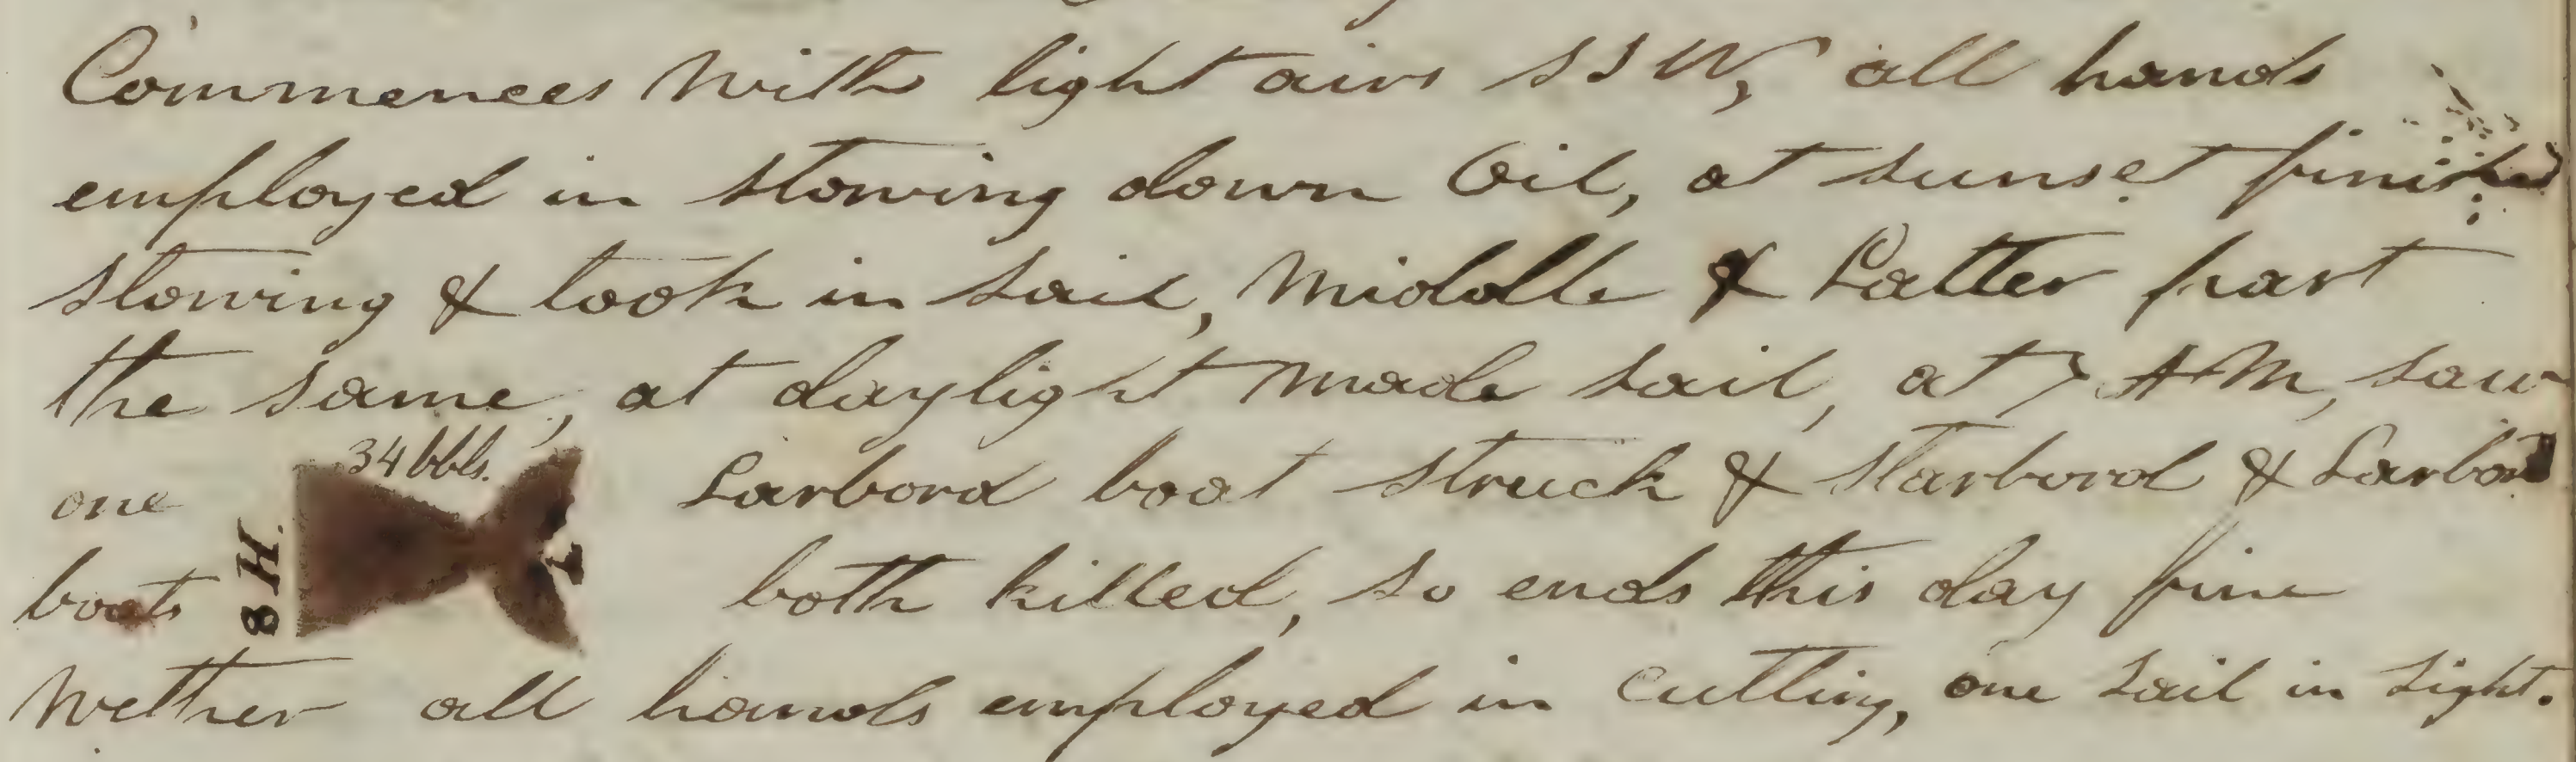 Commences with light airs SSW, all hands
employed in stowing down Oil, at sunset finished
stowing & took in sail, Middle & Latter part
the same, at daylight made sail, at 7 AM, saw
34 bbls.
one Larbord boat struck & Starbord & Larbord
8 H.
boats both killed, so ends this day fine
Wether all hands employed in Cutting, one sail in sight.